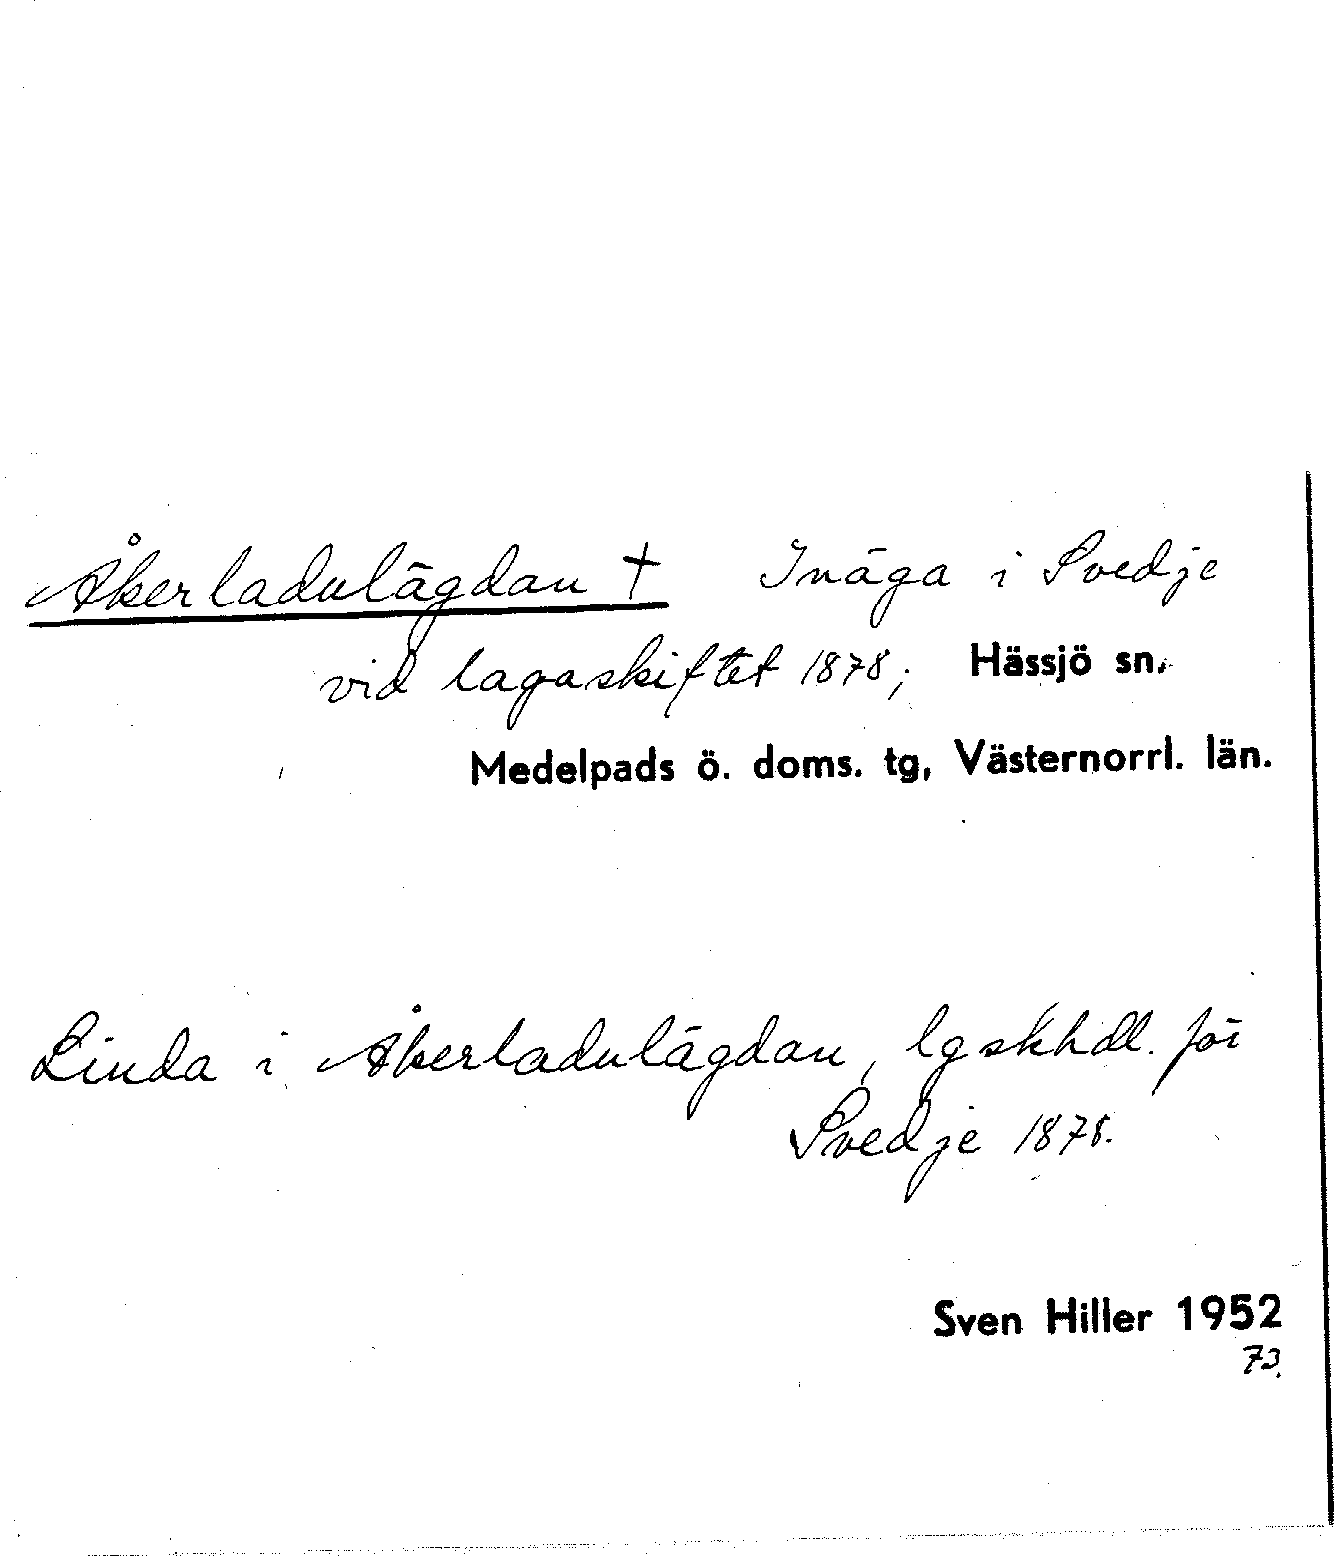 Åkerladulägdan † Inäga i Svedje
vid lagaskiftet 1878; Hässjö sn.
Medelpads ö. doms. tg, Västernorrl. län.
Linda i Åkerladulägdan, lgskhdl. för
Svedje 1878.
Sven Hiller 1952
73.